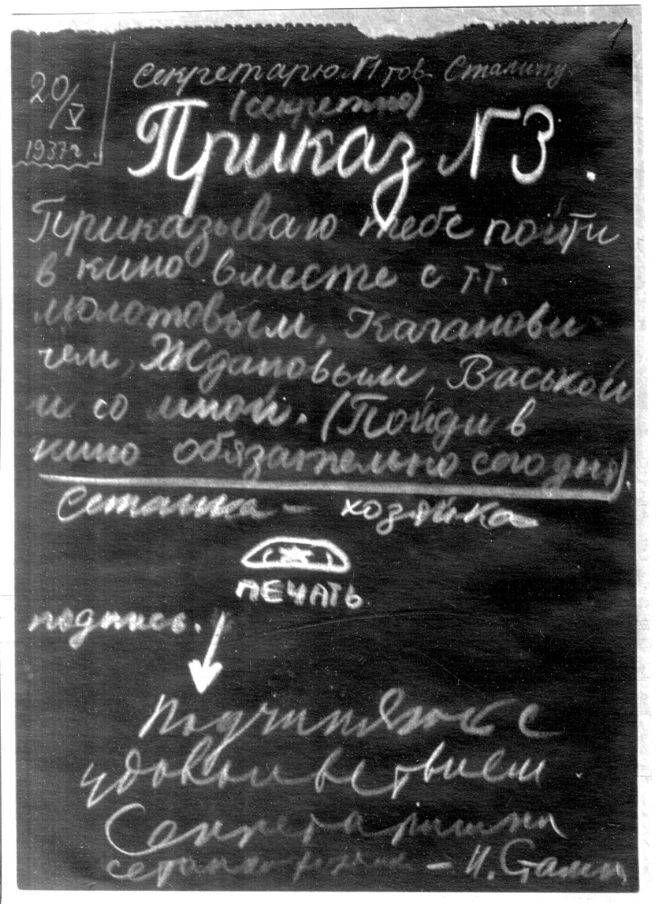 20/V
1937 г.
Секретарю N1 тов. Сталину.
(секретно)
Приказ N3.
Приказываю тебе пойти
в кино вместе с т.т.
молотовым, Каганови-
чем, Ждановым, Васькой
и со мной. (Пойди в
кино обязательно сегодня).
Сетанка - хозяйка
ПЕЧАТЬ
подпись.
Подчиняюсь с
удовольствием.
Секретаришка
- И. Сталин